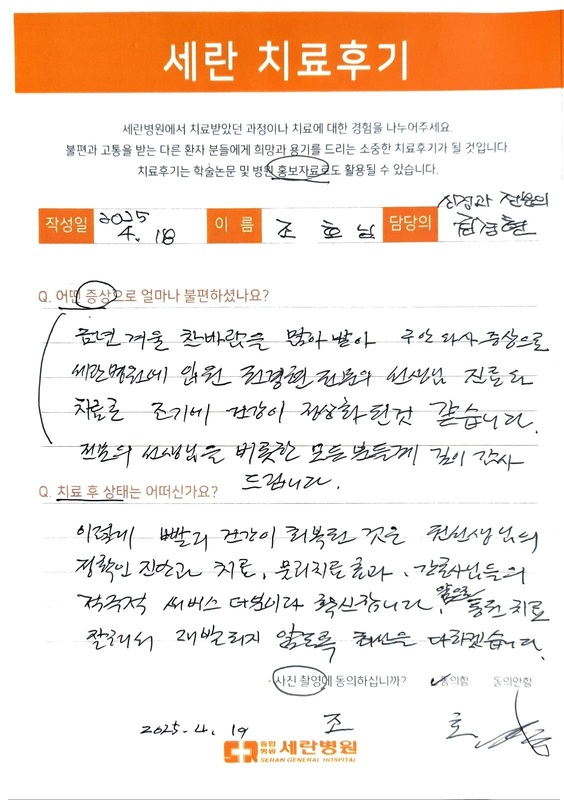 세란 치료후기
세란병원에서 치료받았던 과정이나 치료에 대한 경험을 나누어주세요.
불편과 고통을 받는 다른 환자 분들에게 희망과 용기를 드리는 소중한 치료후기가 될 것입니다.
치료후기는 학술논문 및 병원 홍보자료로도 활용될 수 있습니다.
신경과 전문의
작성일 2025 4. 18 이 름 조 호 담당의
Q. 어떤 증상으로 얼마나 불편하셨나요?
금년 겨울 찬바람을 많이 받아 구안와사 증상으로
세란병원에 입원 전문의 선생님 진료와
치료로 조기에 건강이 정상화 된것 같습니다.
전문의 선생님을 비롯한 모든 분들께 깊이 감사
드립니다.
Q. 치료 후 상태는 어떠신가요?
이렇게 빨리 건강이 회복된 것은 선생님의
정확한 진단과 치료, 물리치료 효과, 간호사님들의
적극적 써비스 더불이다 확신합니다. 앞으로 통원 치료
잘하여 재발되지 않도록 최선을 다하겠습니다.
- 사진 촬영에 동의하십니까? 동의함 동의안함
2025.4. 19 조 호
종합병원 세란병원
SERAN GENERAL HOSPITAL